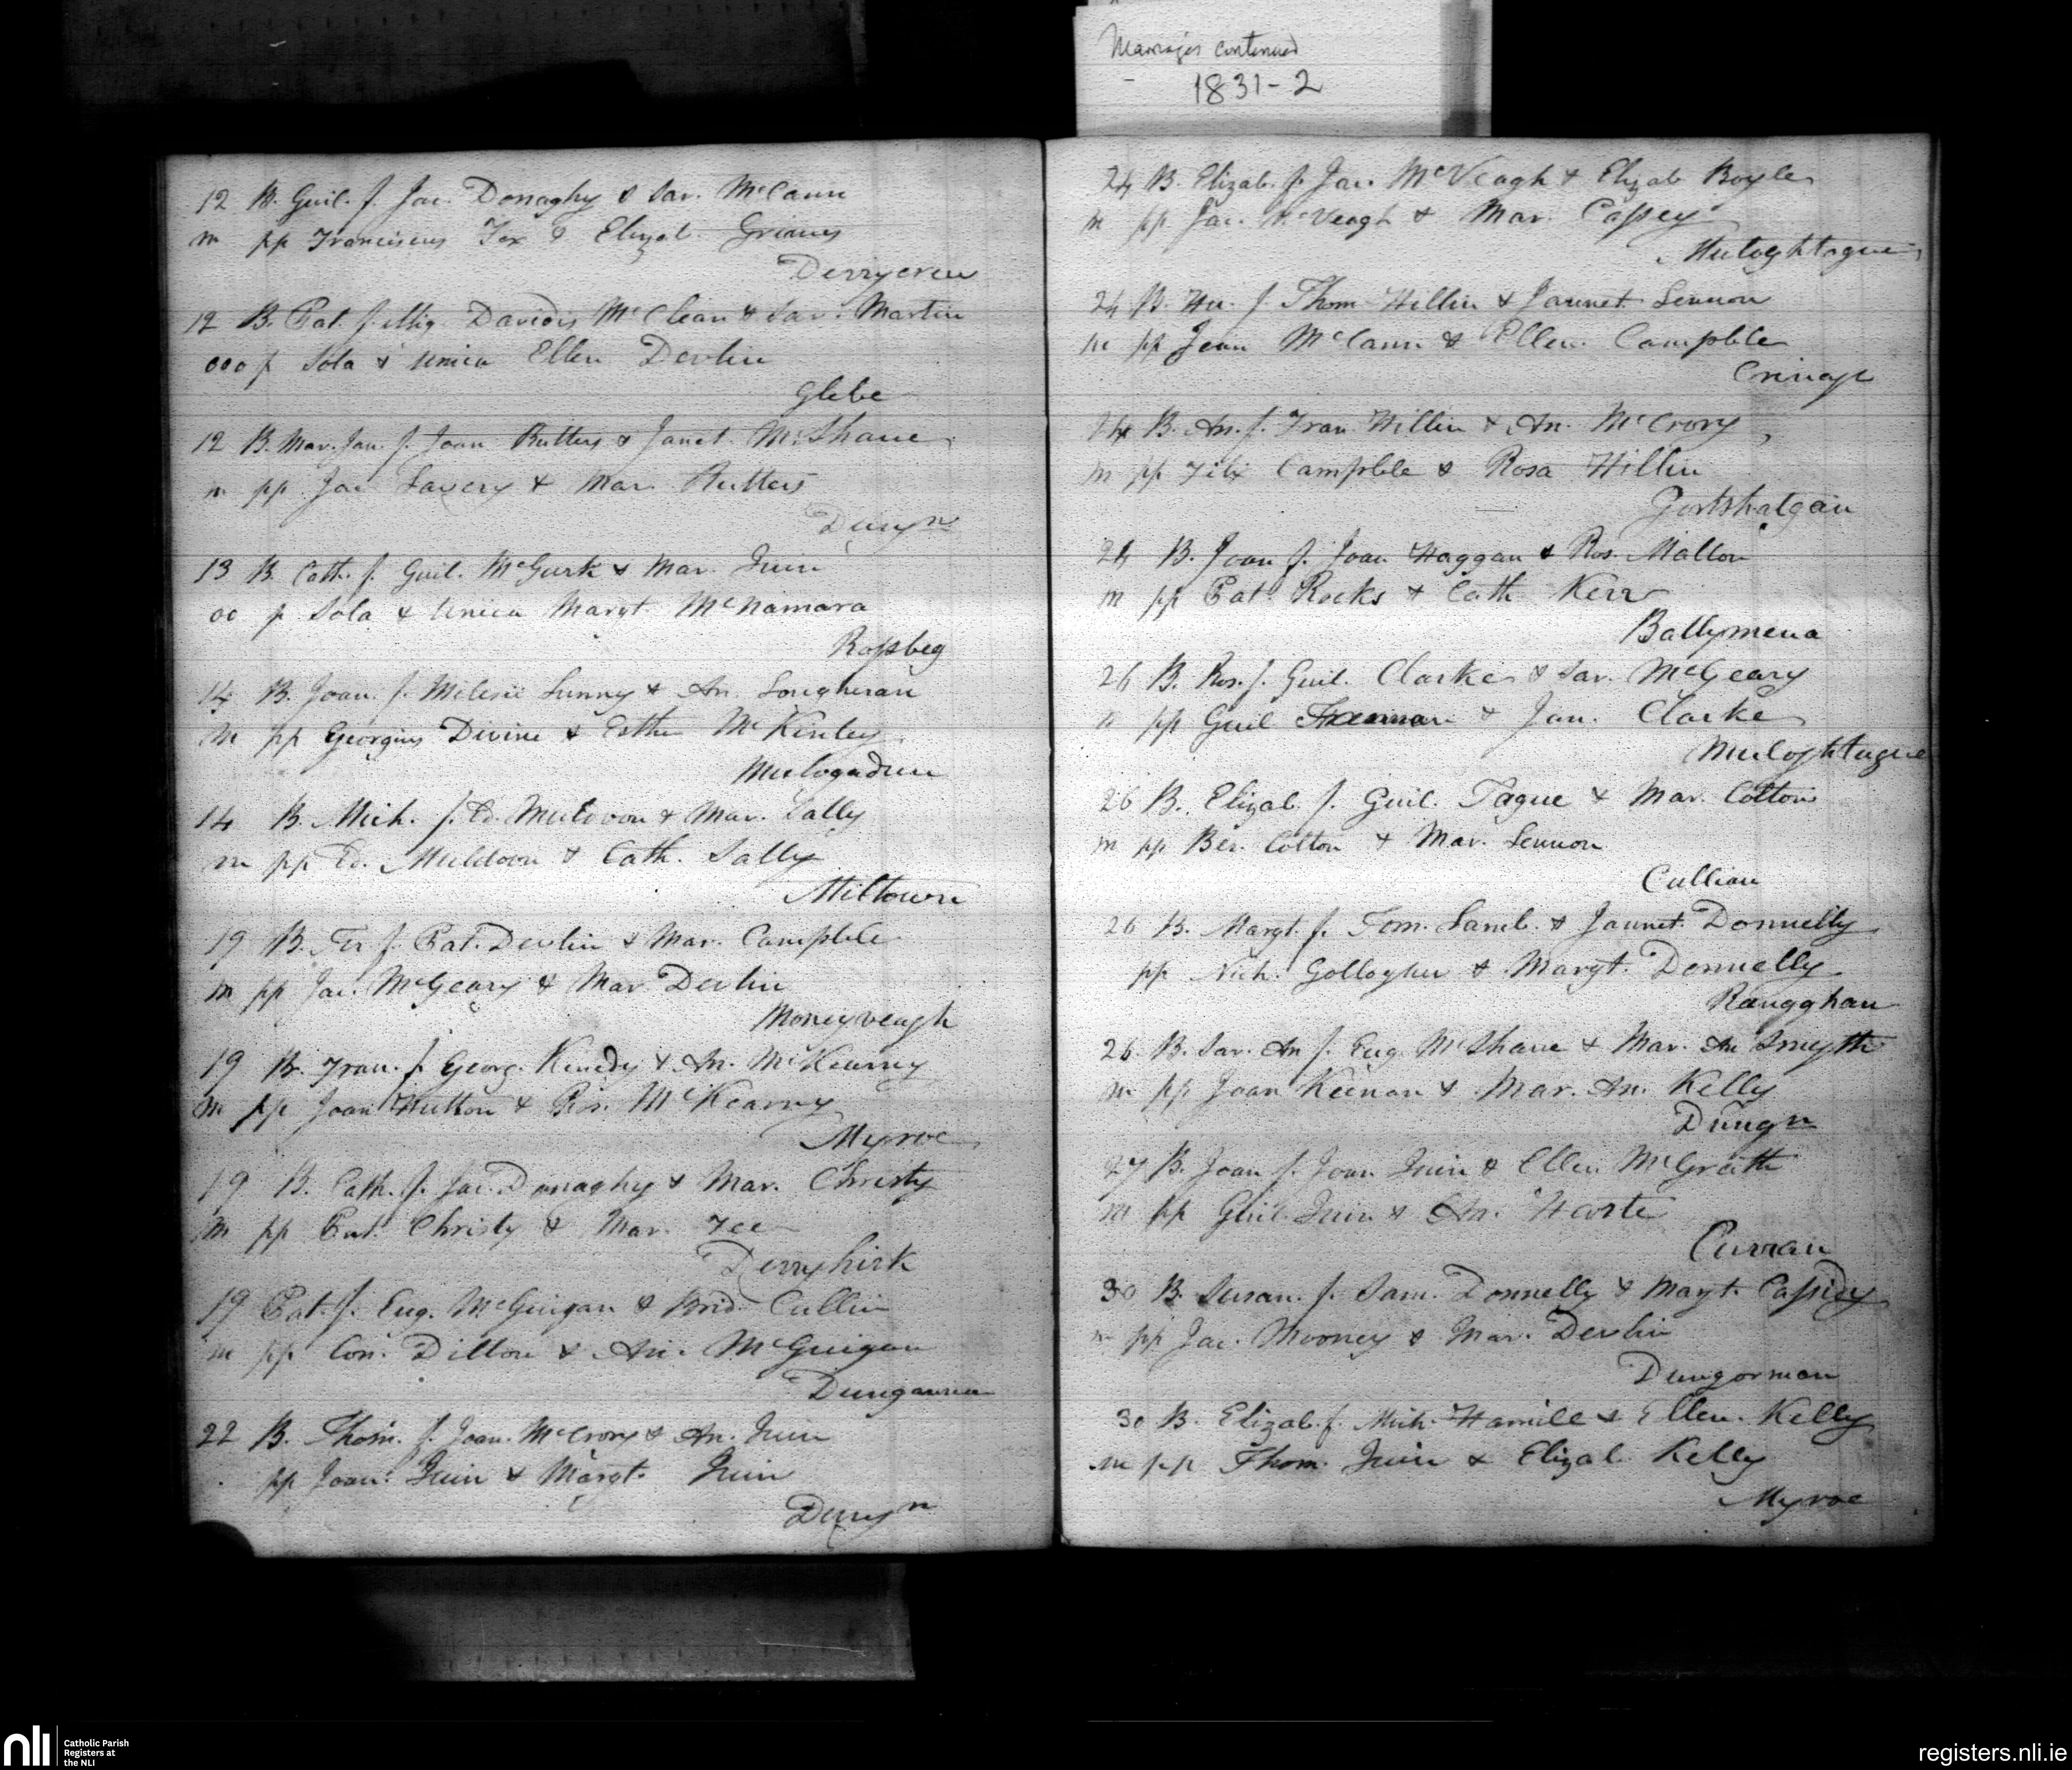 Marriages continued
1831-2
12 B. Guil. f. Jac. Donaghy & Sar. McCann
m pp Franciscus Fox & Elizab. Grimes
Derrycrew
12 B. Pat. f. illig Davidis McClean & Sar. Martin
000 p Sola & Unica Ellen Devlin
Glebe
12 B. Mar. Jan. f. Joan Rutters & Janet. McShane
m pp Jac Lavery & Mar. Rutters
Dungn
13 B. Cath. f. Guil. McGurk & Mar. Quin
00 p Sola & Unica Margt. McNamara
Rossbeg
14 B. Joan. f. Milesii Lunny & An. Lougheran
m pp Georgius Divine & Esther McKinley
Mulogadrun
14 B. Mich. f. Ed. Muldoon & Mar. Lally
m pp Ed. Muldoon & Cath. Lally
Miltown
19 B. Ter f. Pat. Devlin & Mar. Campble
m pp Jac. McGeary & Mar Devlin
Moneyveagh
19 B. Fran. f. Georg. Kinedy & An. McKearny
m pp Joan Hutton & Ros. McKearny
Myroe
19 B. Cath. f. Jac. Donaghy & Mar. Christy
m pp Pat. Christy & Mar. Fee
Derryhirk
19 Pat. f. Eug. McGuigan & Brid. Cullin
m pp Con. Dillon & An. McGuigan
Dungannon
22 B. Thom. f. Joan. McCrory & An. Quin
pp Joan. Quin & Margt. Quin
Dungn
24 B. Elizab. f. Jac. McVeagh & Elizab Boyle
m pp Jac. McVeagh & Mar. Cassey
Muloghtogue
24 B. Hu. f. Thom Hillin & Jannet Lennon
m pp Joan McCann & Ellen Campble
Crivagh
24 B. An. f. Fran Hillin & An. McCrory
m pp Felix Campble & Rosa Hillin
Gortshalgan
24 B. Joan f. Joan Haggan & Ros. Mallon
m pp Pat. Rocks & Cath Kerr
Ballymena
26 B. Ros. f. Guil. Clarke & Sar. McGeary
m pp Guil & Jan. Clarke
Muloghtugue
26 B. Elizab. f. Guil. Tague & Mar. Colton
m pp Ber. Colton & Mar. Lennon
Cullion
26 B. Margt. f. Tom. Lamb. & Jannet Donnelly
pp Nich. Gollogher & Margt. Donnelly
Rangghan
26 B. Sar. An f. Eug. McShane & Mar. An Smyth
m pp Joan Keenan & Mar. An. Kelly
Dungn
27 B. Joan f. Joan Quin & Ellen McGrath
m pp Guil. Quin & An. Harte
Curran
30 B. Susan. f. Sam. Donnelly & Margt. Cassidy
m pp Jac. Mooney & Mar. Devlin
Dungorman
30 B. Elizab. f. Mich. Hamill & Ellen. Kelly
m pp Thom. Quin & Elizab Kelly
Myroe
nli
Catholic Parish
Registers at
the NLI
registers.nli.ie